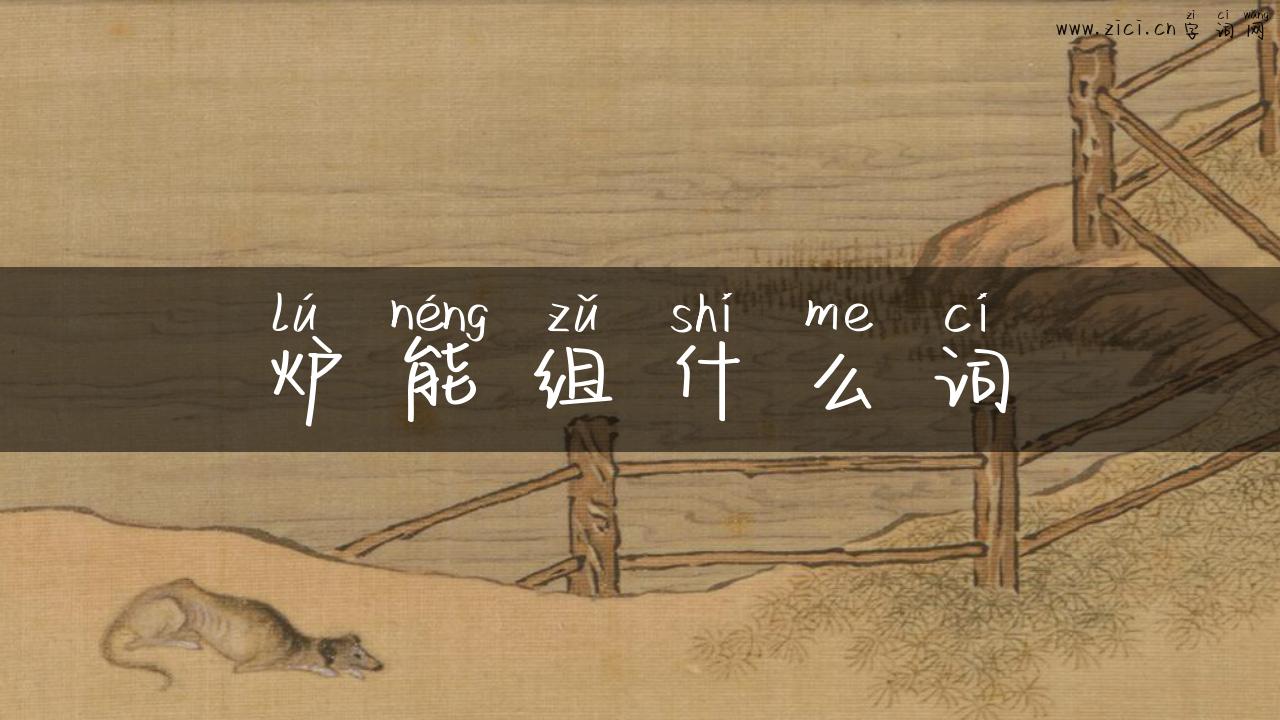 zì cí wǎng
www.zici.cn 字词网
lú néng zǔ shí me cí
炉能组什么词